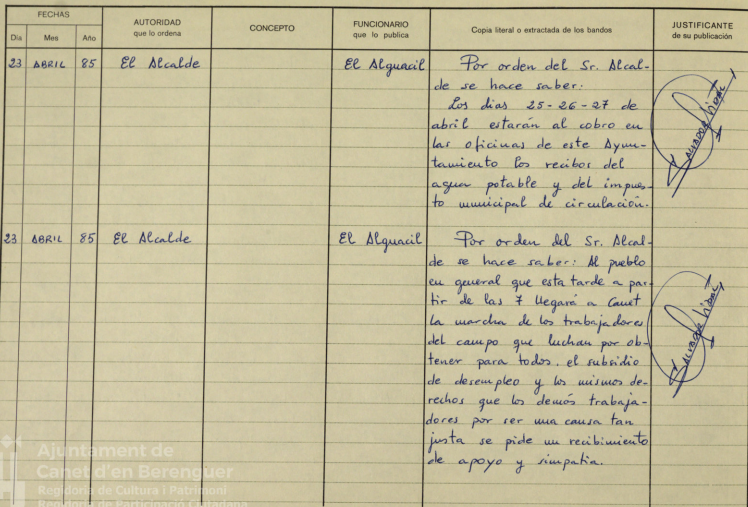 FECHAS
Día Mes Año
AUTORIDAD
que lo ordena
CONCEPTO
FUNCIONARIO
que lo publica
Copia literal o extractada de los bandos
JUSTIFICANTE
de su publicación
23 ABRIL 85 El Alcalde El Alguacil Por orden del Sr. Alcal-
de se hace saber:
Los dias 25-26-27 de
abril estarán al cobro en
las oficinas de este Ayun-
tamiento los recibos del
agua potable y del impues-
to municipal de circulación.
23 ABRIL 85 El Alcalde El Alguacil Por orden del Sr. Alcal-
de se hace saber: Al pueblo
en general que esta tarde a par-
tir de las 7 llegará a Canet
la marcha de los trabajadores
del campo que luchan por ob-
tener para todos. el subsidio
de desempleo y los mismos de-
rechos que los demás trabaja-
dores por ser una causa tan
justa se pide un recibimiento
de apoyo y simpatia.
Ajuntament de
Canet d'en Berenguer
Regidoria de Cultura i Patrimoni
Regidoria de Participació Ciutadana